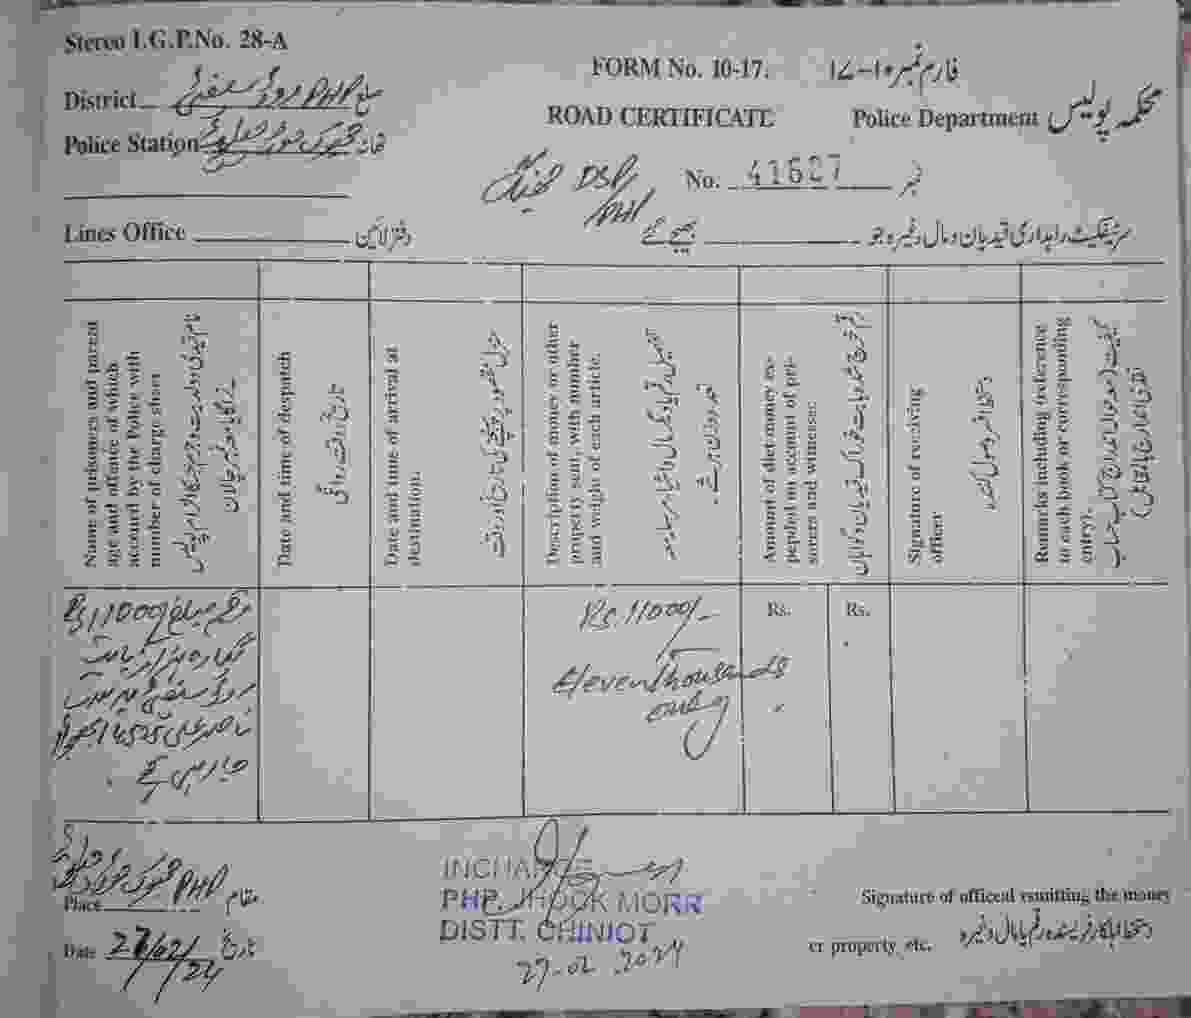 Stereo I.G.P.No. 28-A
FORM No. 10-17. فارم نمبر ۱۰-۱۷
District PHP ضلع
ROAD CERTIFICATE
Police Department محکمہ پولیس
Police Station تھانہ
DSP
PHP
No. 41627 نمبر
Lines Office دفتر لائین
سرٹیفکیٹ راہداری قیدیان و مال وغیرہ جو بھیجے گئے
Name of prisoners and parent
age and offence of which
accused by the Police with
number of charge sheet
نام قیدی و ولدیت و جرم جس کا الزام پولیس
نے لگایا معہ نمبر چالان
Date and time of despatch
تاریخ و وقت روانگی
Date and time of arrival at
destination.
منزل مقصود پر پہنچنے کی تاریخ اور وقت
Description of money or other
property sent, with number
and weight of each article.
تفصیل رقم یا دیگر مال و اشیاء مرسلہ معہ
تعداد و وزن ہر شے۔
Amount of diet money ex-
pended on account of pri-
soners and witnesses.
رقم خرچ شدہ بابت خوراک قیدیان و گواہان
Signature of receiving
officer
دستخط افسر وصول کنندہ
Remarks including (reference
to cash book or corresponding
entry).
کیفیت (معہ حوالہ اندراج کتاب حساب
نقدی یا اندراج بالمقابل)
رقم مبلغ Rs 11000/
گیارہ ہزار بابت
ناصر علی 525
جا رہی ہے
Rs. 11000/-
Eleven thousands
only
Rs.
Rs.
Place PHP مقام
Date 27/02/24 تاریخ
INCHARGE
PHP. JHOOK MORR
DISTT. CHINIOT
27-02-2024
Signature of officeal remitting the money
or property, etc. دستخط اہلکار فریسندہ رقم یا مال وغیرہ